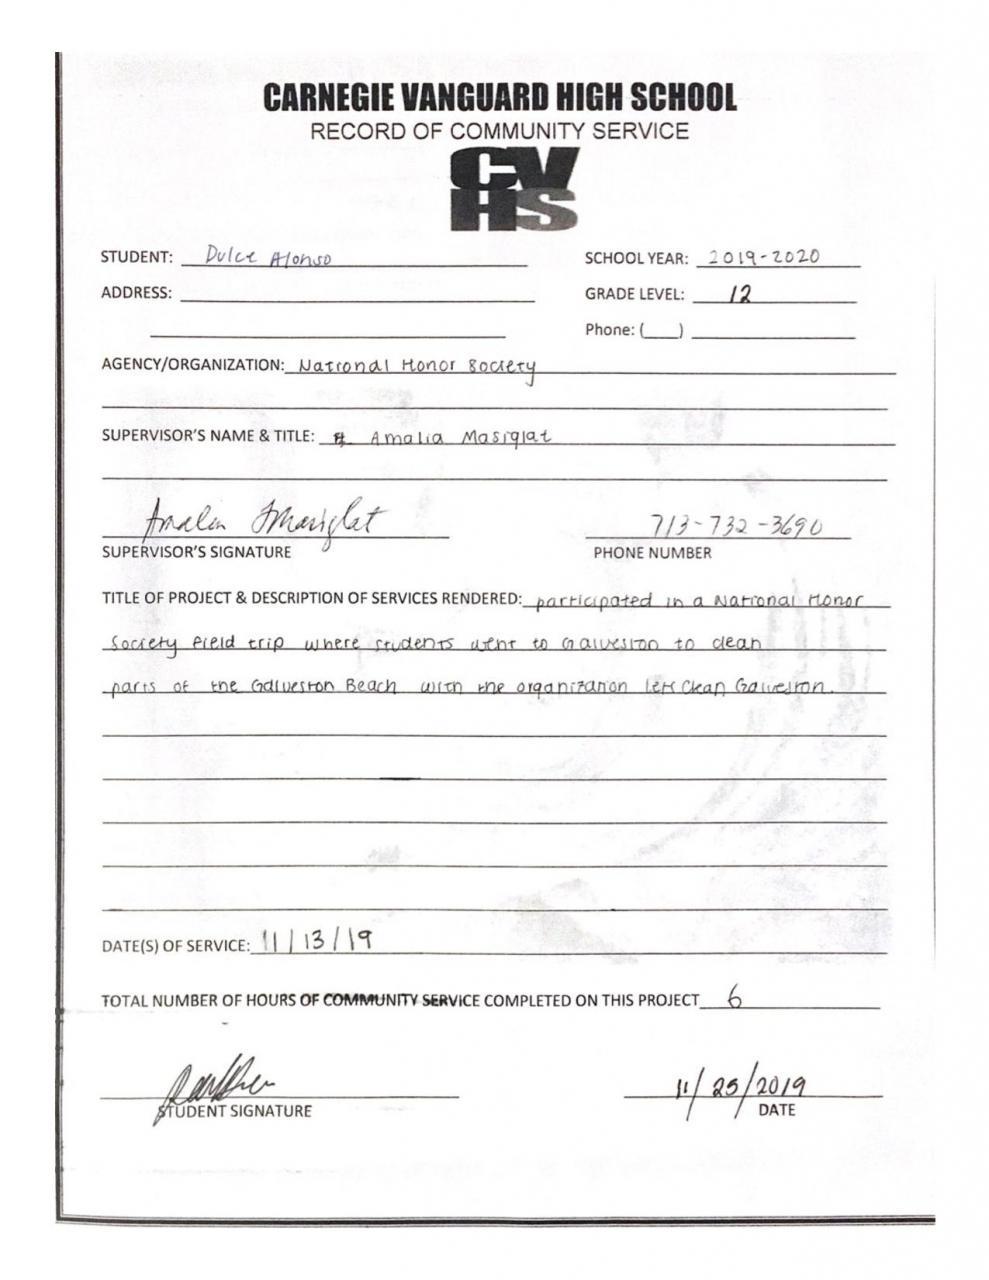 CARNEGIE VANGUARD HIGH SCHOOL
RECORD OF COMMUNITY SERVICE
CV
HS
STUDENT: Dulce Alonso SCHOOL YEAR: 2019-2020
ADDRESS: GRADE LEVEL: 12
Phone: ( )
AGENCY/ORGANIZATION: National Honor Society
SUPERVISOR'S NAME & TITLE: Amalia Masiglat
Amalia Masiglat 713-732-3690
SUPERVISOR'S SIGNATURE PHONE NUMBER
TITLE OF PROJECT & DESCRIPTION OF SERVICES RENDERED: participated in a National Honor
Society field trip where students went to Galveston to clean
parts of the Galveston Beach with the organization Lets Clean Galveston.
DATE(S) OF SERVICE: 11/13/19
TOTAL NUMBER OF HOURS OF COMMUNITY SERVICE COMPLETED ON THIS PROJECT 6
11/25/2019
STUDENT SIGNATURE DATE